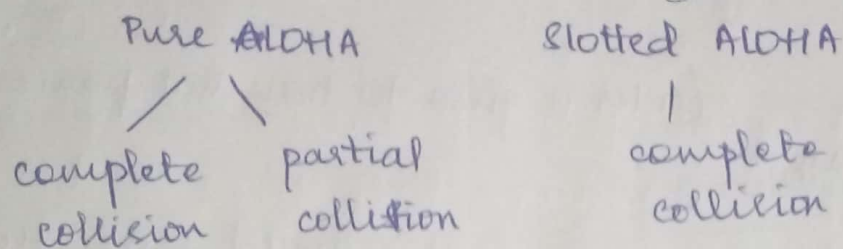 Pure ALOHA
Slotted ALOHA
complete
collision
partial
collision
complete
collision